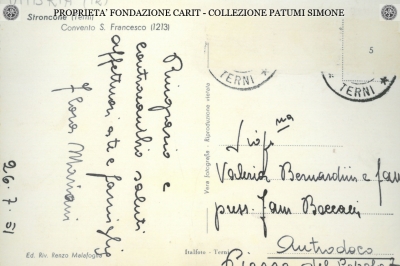 PROPRIETA' FONDAZIONE CARIT - COLLEZIONE PATUMI SIMONE
Stroncone (Terni)
Convento S. Francesco (1213)
Ringrazio e
contraccambio saluti
affettuosi a te e famiglia
Flora Mariani
26.7.51
Ed. Riv. Renzo Malafoglia
Vera fotografia - Riproduzione vietata
Italfoto - Terni
TERNI
TERNI
5
Sig.na
Valeria Bernardini e fam
press. Fam Boccacci
Antrodoco
Piazza del Popolo